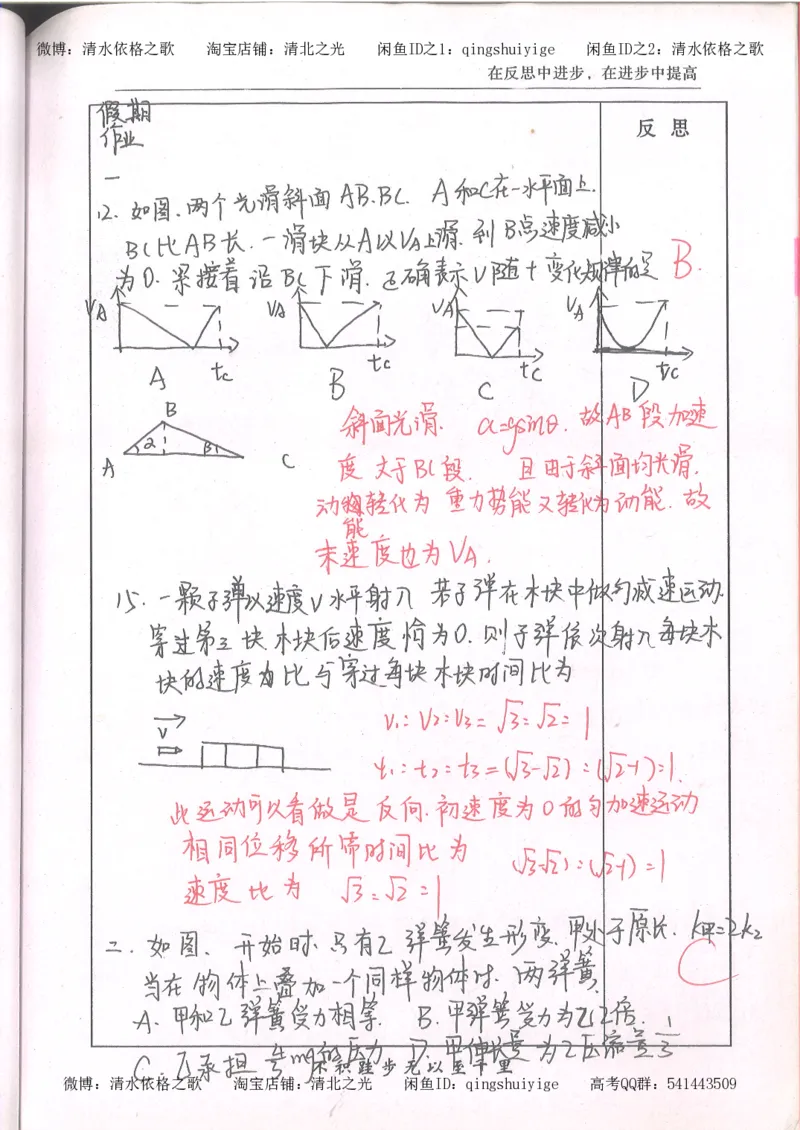 微博：清水依格之歌 淘宝店铺：清北之光 闲鱼ID之1：qingshuiyige 闲鱼ID之2：清水依格之歌
在反思中进步，在进步中提高
假期
作业
反 思
一
12. 如图.两个光滑斜面AB.BC. A和C在一水平面上.
BC比AB长.一滑块从A以VA上滑.到B点速度减小
为0.紧接着沿BC下滑.正确表示V随t变化规律的是 B.
VA VA VA VA
tc tc tc tc
A B C D
B
A α β C
斜面光滑. a=gsinθ.故AB段加速
度大于BC段. 且由于斜面均光滑.
动能转化为重力势能又转化为动能.故
末速度也为VA.
15.一颗子弹以速度V水平射入 若子弹在木块中做匀减速运动.
穿过第三块木块后速度恰为0.则子弹依次射入每块木
块的速度比与穿过每块木块时间比为
V
V1:V2:V3=√3:√2:1
t1:t2:t3=(√3-√2):(√2-1):1.
此运动可以看做是反向.初速度为0的匀加速运动
相同位移所需时间比为 (√3-√2):(√2-1):1
速度比为 √3:√2:1
二.如图. 开始时.只有乙弹簧发生形变.甲处于原长. k甲=2k2
当在物体上叠加一个同样物体时.两弹簧 C
A.甲和乙弹簧受力相等. B.甲弹簧受力为乙2倍.
C.乙承担 mg的压力 D.甲伸长量为乙压缩量1/3
不积跬步无以至千里
微博：清水依格之歌 淘宝店铺：清北之光 闲鱼ID：qingshuiyige 高考QQ群：541443509